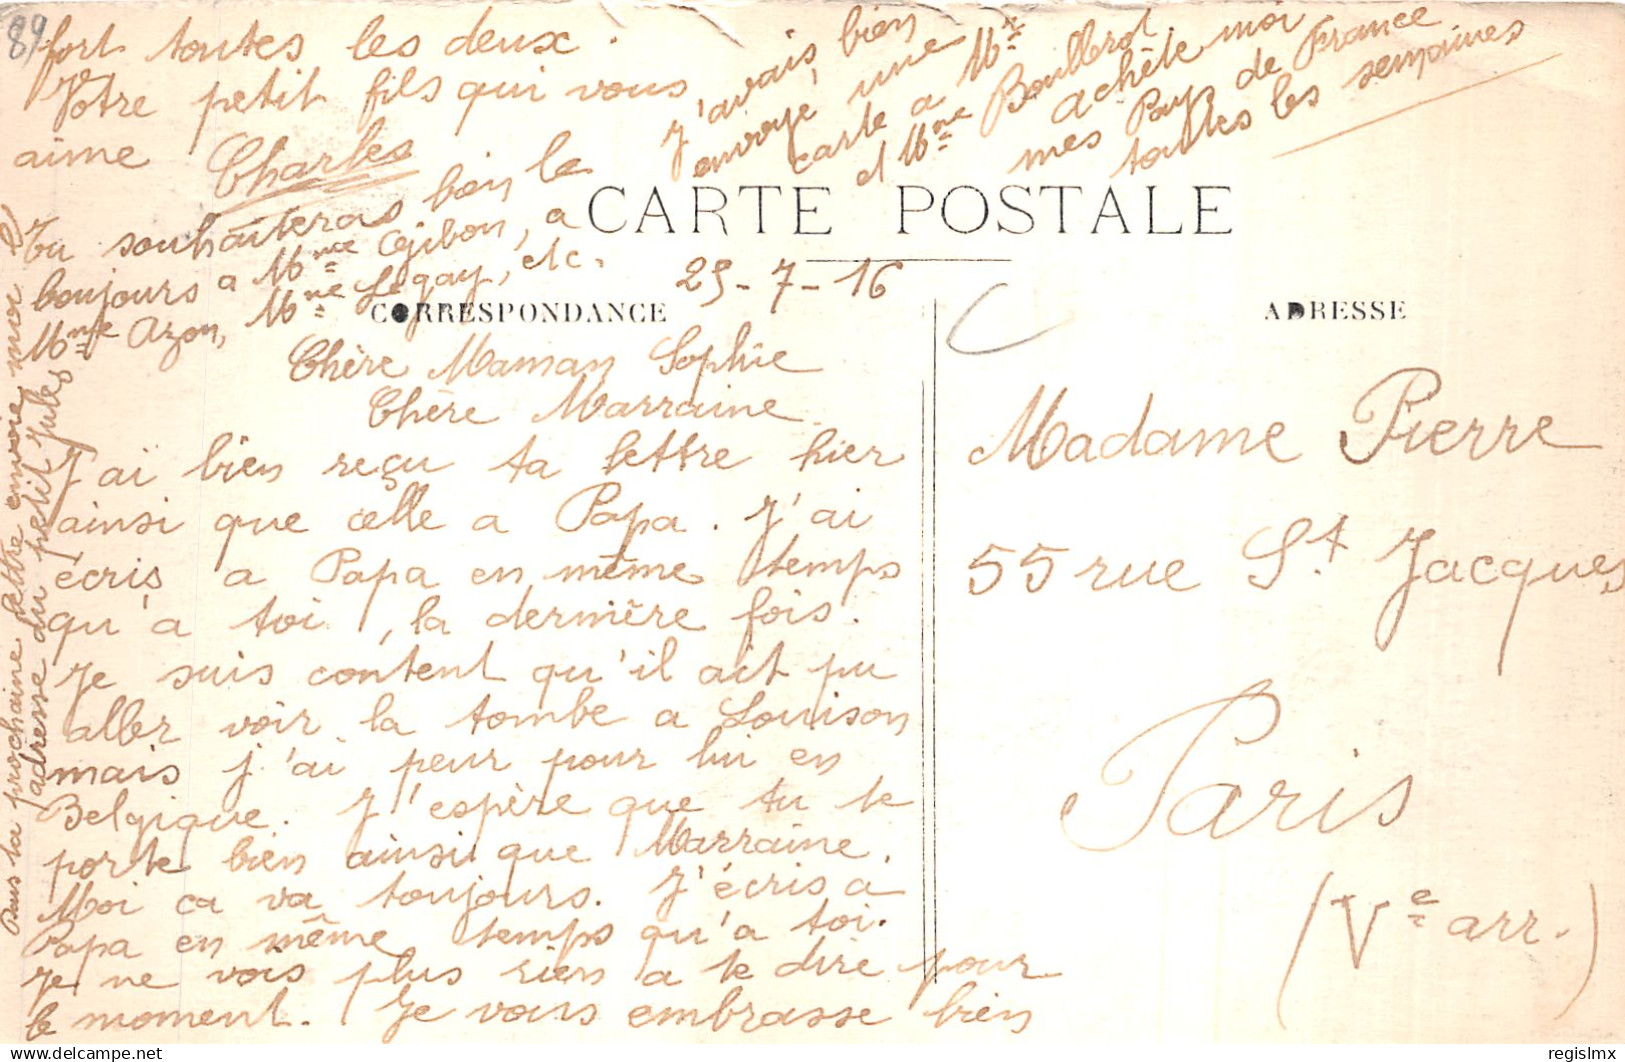 89
CARTE POSTALE
CORRESPONDANCE
ADRESSE
25-7-16
Chère Maman Sophie
Chère Marraine
J'ai bien reçu ta lettre hier
ainsi que celle a Papa. J'ai
écris a Papa en même temps
qu'a toi, la dernière fois.
Je suis content qu'il ait pu
aller voir la tombe a Louison
mais j'ai peur pour lui en
Belgique. J'espère que tu te
porte bien ainsi que Marraine.
Moi ca va toujours. J'écris a
Papa en même temps qu'a toi.
Je ne vois plus rien a te dire pour
le moment. Je vous embrasse bien
fort toutes les deux.
Votre petit fils qui vous
aime Charles
Tu souhaiteras bien le
bonjours a Mme Gibon, a
Mme Azon, Mme Legay, etc.
J'avais bien
envoye une
carte a Mr
et Mme Boullerot
achète moi
mes Pays de France
toutes les semaines
Dans ta prochaine lettre envoie moi l'
adresse du petit Jules
Madame Pierre
55 rue St. Jacques
Paris
(Ve arr.)
regislmx
Delcampe.net